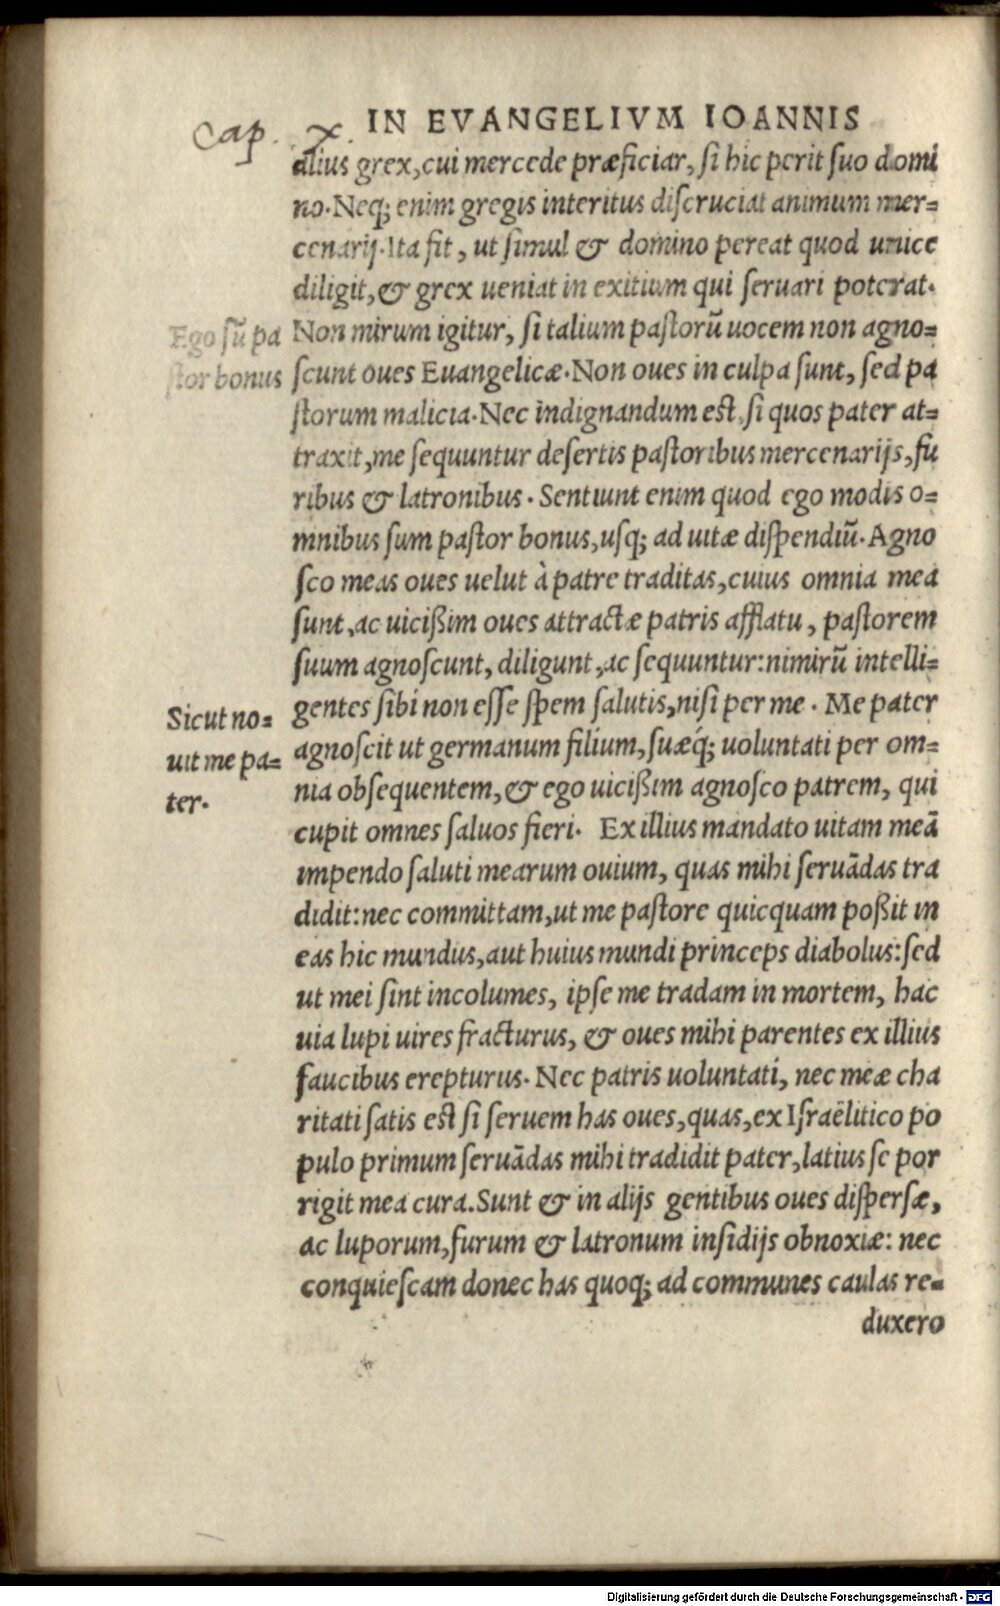 Cap. x.
IN EVANGELIVM IOANNIS
alius grex, cui mercede præficiar, si hic perit suo domi
no. Neq; enim gregis interitus discruciat animum mer=
cenarij. Ita fit, ut simul & domino pereat quod unice
diligit, & grex ueniat in exitium qui seruari poterat.
Ego sũ pa
stor bonus
Non mirum igitur, si talium pastorũ uocem non agno=
scunt oues Euangelicæ. Non oues in culpa sunt, sed pa
storum malicia. Nec indignandum est, si quos pater at=
traxit, me sequuntur desertis pastoribus mercenarijs, fu
ribus & latronibus. Sentiunt enim quod ego modis o=
mnibus sum pastor bonus, usq; ad uitæ dispendiũ. Agno
sco meas oues uelut à patre traditas, cuius omnia mea
sunt, ac uicißim oues attractæ patris afflatu, pastorem
suum agnoscunt, diligunt, ac sequuntur: nimirũ intelli=
gentes sibi non esse spem salutis, nisi per me. Me pater
Sicut no=
uit me pa=
ter.
agnoscit ut germanum filium, suæq́; uoluntati per om=
nia obsequentem, & ego uicißim agnosco patrem, qui
cupit omnes saluos fieri. Ex illius mandato uitam meã
impendo saluti mearum ouium, quas mihi seruãdas tra
didit: nec committam, ut me pastore quicquam poßit in
eas hic mundus, aut huius mundi princeps diabolus: sed
ut mei sint incolumes, ipse me tradam in mortem, hac
uia lupi uires fracturus, & oues mihi parentes ex illius
faucibus erepturus. Nec patris uoluntati, nec meæ cha
ritati satis est si seruem has oues, quas, ex Israëlitico po
pulo primum seruãdas mihi tradidit pater, latius se por
rigit mea cura. Sunt & in alijs gentibus oues dispersæ,
ac luporum, furum & latronum insidijs obnoxiæ: nec
conquiescam donec has quoq; ad communes caulas re=
duxero
Digitalisierung gefördert durch die Deutsche Forschungsgemeinschaft - DFG